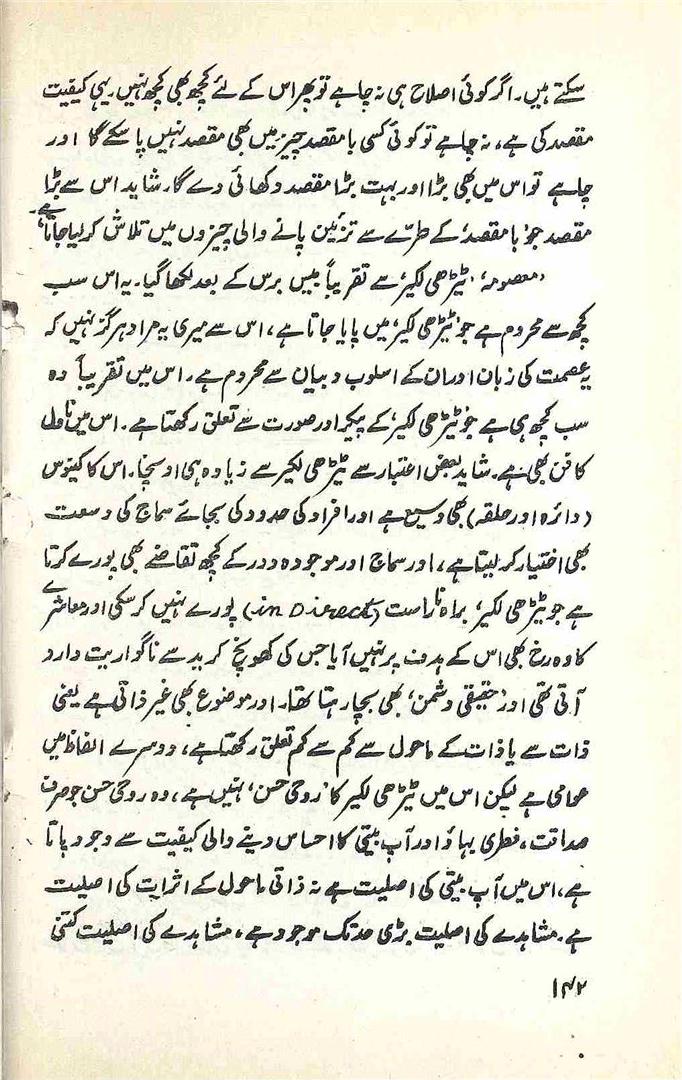 سکتے ہیں۔ اگر کوئی اصلاح ہی نہ چاہے تو پھر اس کے لئے کچھ بھی کچھ نہیں۔ یہی کیفیت
مقصد کی ہے، نہ چاہے تو کوئی کسی با مقصد چیز میں بھی مقصد نہیں پا سکے گا اور
چاہے تو اس میں بھی بڑا اور بہت بڑا مقصد دکھائی دے گا۔ شاید اس سے بڑا
مقصد جو 'با مقصد' کے طرّے سے تزئین پانے والی چیزوں میں تلاش کر لیا جاتا ہے۔
'معصومہ' 'ٹیڑھی لکیر' سے تقریباً بیس برس کے بعد لکھا گیا۔ یہ اس سب
کچھ سے محروم ہے جو 'ٹیڑھی لکیر' میں پایا جاتا ہے، اس سے میری یہ مراد ہرگز نہیں کہ
یہ عصمت کی زبان اور ان کے اسلوب و بیان سے محروم ہے۔ اس میں تقریباً وہ
سب کچھ ہی ہے جو 'ٹیڑھی لکیر' کے پیکر اور صورت سے تعلق رکھتا ہے۔ اس میں ناول
کا فن بھی ہے۔ شاید بعض اعتبار سے ٹیڑھی لکیر سے زیادہ ہی اونچا۔ اس کا کینوس
(دائرہ اور حلقہ) بھی وسیع ہے اور افراد کی حدود کی بجائے سماج کی وسعت
بھی اختیار کر لیتا ہے، اور سماج اور موجودہ دور کے کچھ تقاضے بھی پورے کرتا
ہے جو ٹیڑھی لکیر' براہ ناراست (in Direct) پورے نہیں کر سکی اور معاشرے
کا وہ رخ بھی اس کے ہدف پر نہیں آیا جس کی کھوج کرید سے ناگواریت وارد
آتی تھی اور 'حقیقی دشمن' بھی بچا رہتا تھا۔ اور موضوع بھی غیر ذاتی ہے یعنی
ذات سے یا ذات کے ماحول سے کم سے کم تعلق رکھتا ہے، دوسرے الفاظ میں
عوامی ہے لیکن اس میں ٹیڑھی لکیر کا 'روحی حسن' نہیں ہے، وہ روحی حسن جو صرف
صداقت، فطری بہاؤ اور آپ بیتی کا احساس دینے والی کیفیت سے وجود پاتا
ہے، اس میں آپ بیتی کی اصلیت ہے نہ ذاتی ماحول کے اثرات کی اصلیت
ہے۔ مشاہدے کی اصلیت بڑی حد تک موجود ہے، مشاہدے کی اصلیت کتنی
۱۴۲